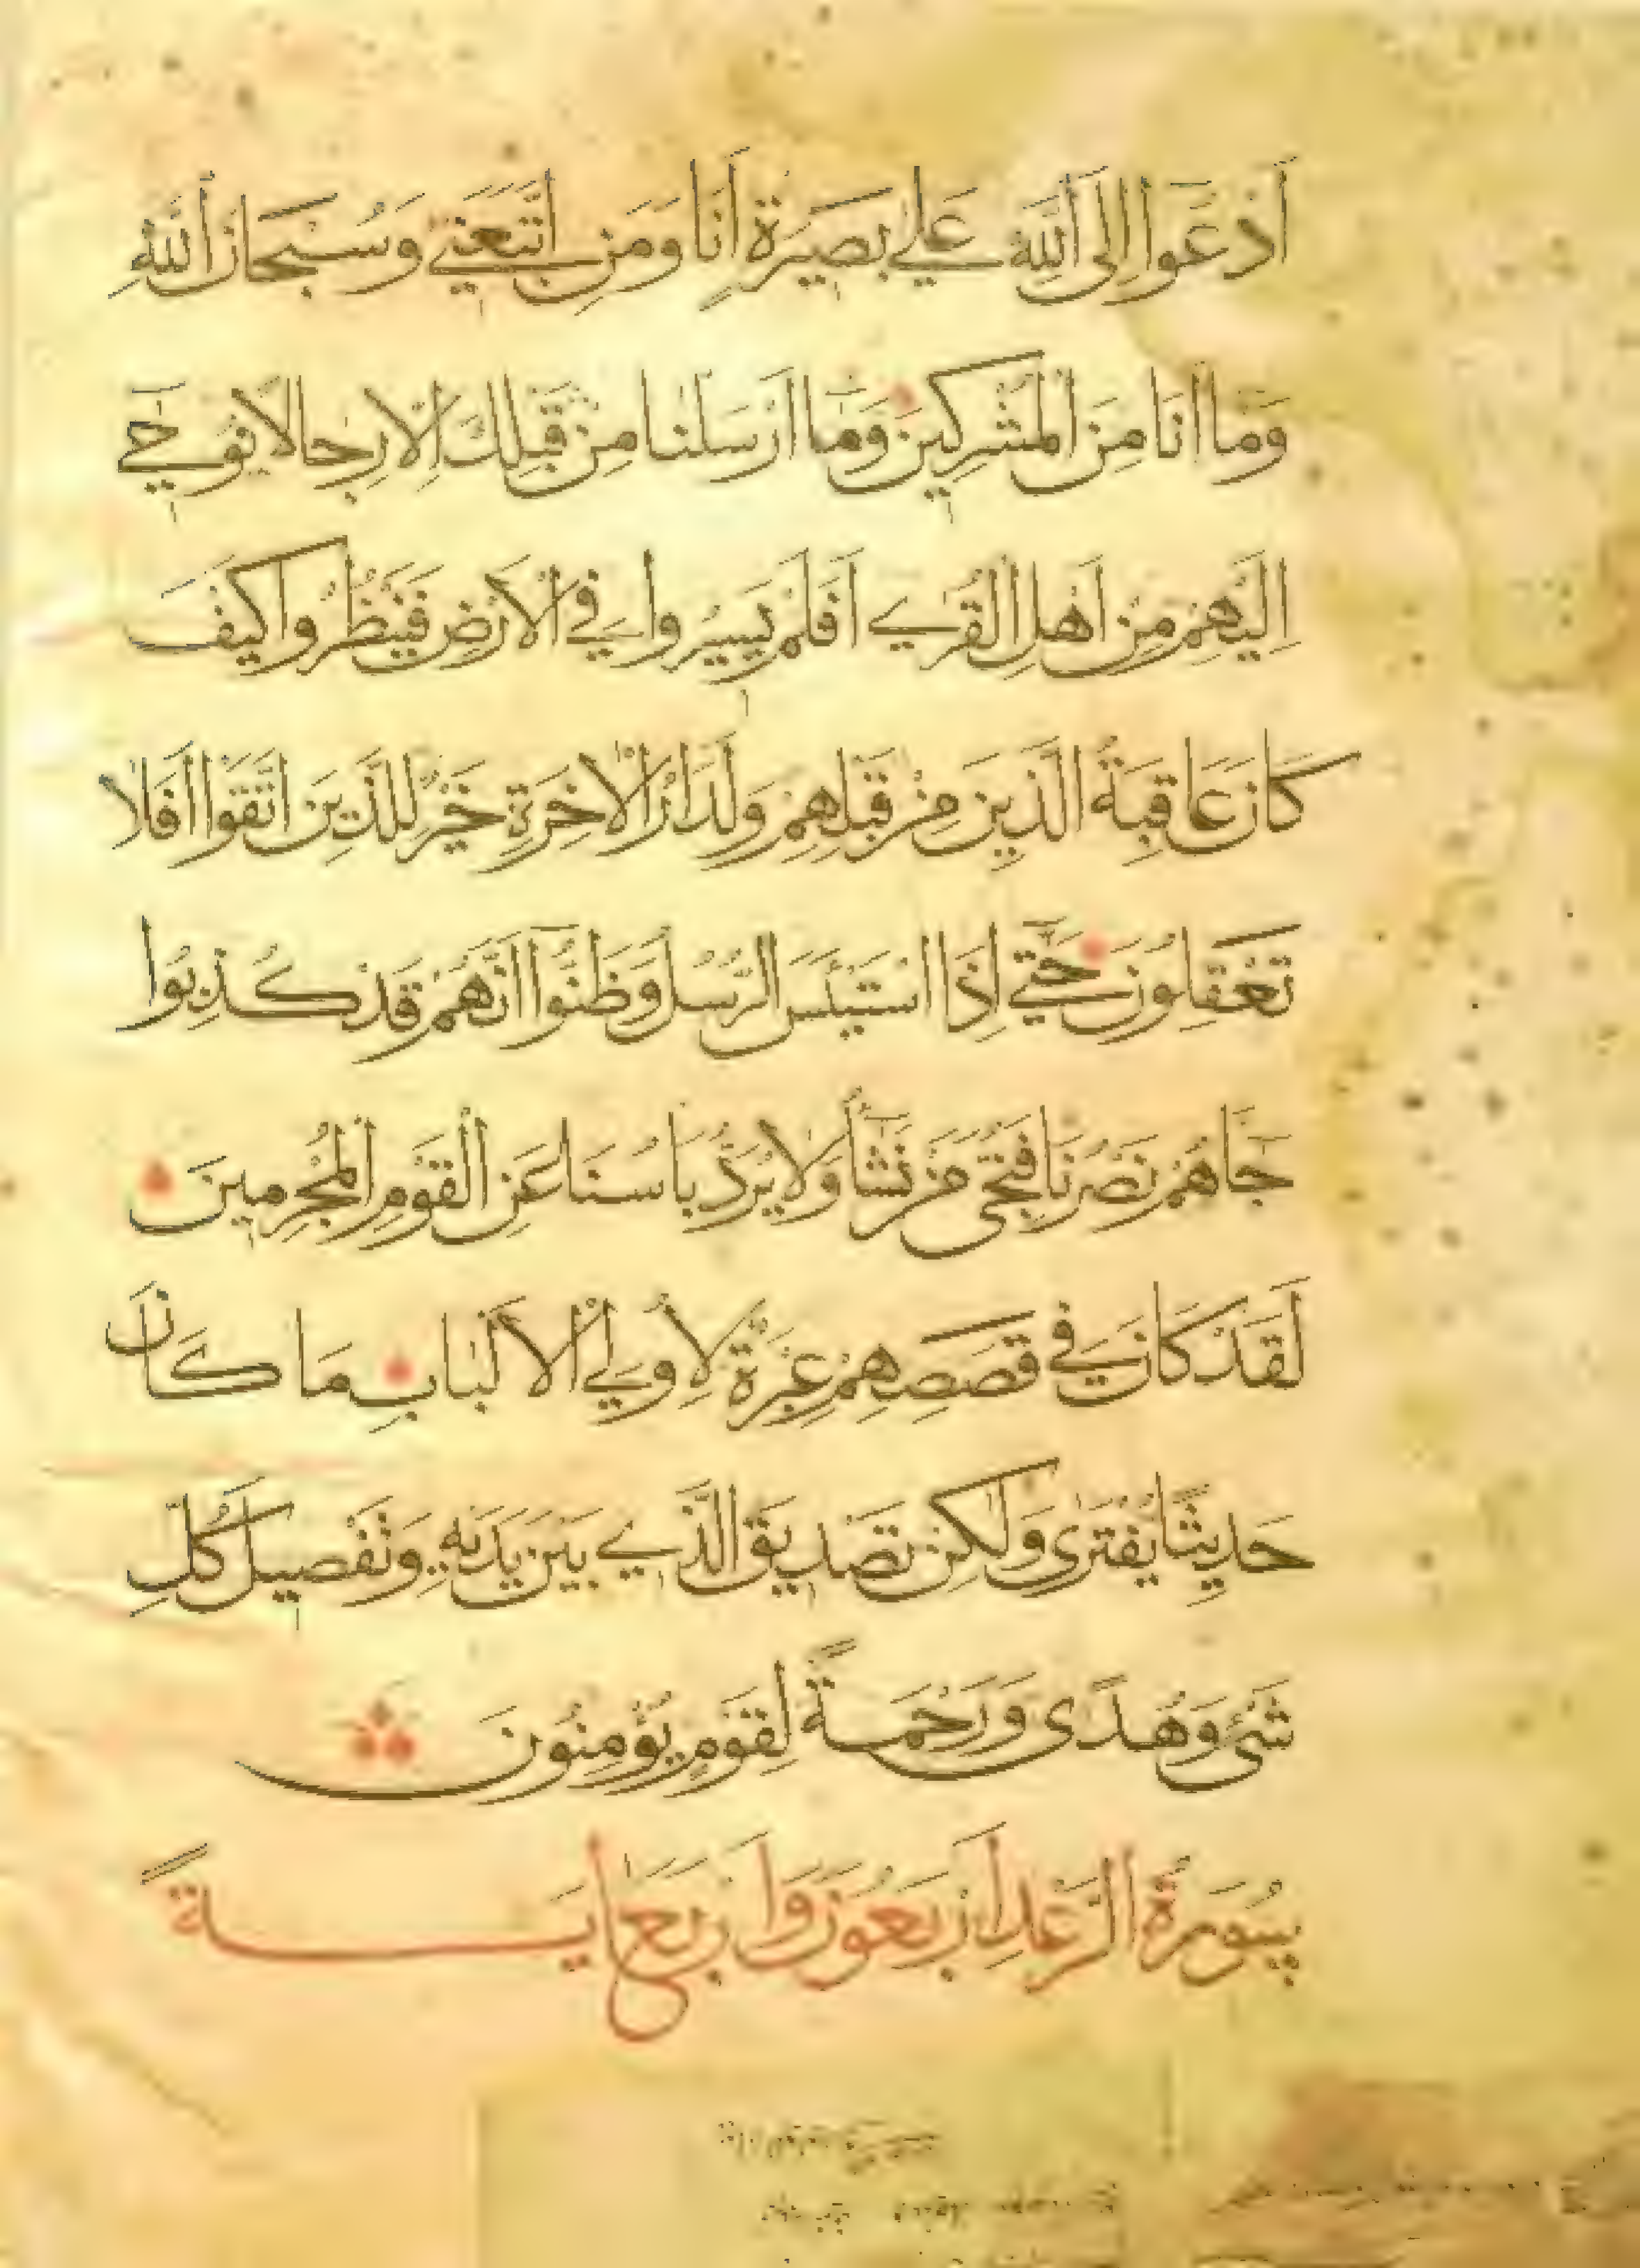 اَدْعُوا اِلَى اَللّٰهِ عَلي بَصِيرَةٍ اَنَا وَمَنِ اتَّبَعَنِي وَسُبْحَانَ اَللّٰهِ
وَمَا اَنَا مِنَ اَلْمُشْرِكِينَ وَمَا اَرْسَلْنَا مِنْ قَبْلِكَ اِلَّا رِجَالًا يُوحٰي
اِلَيْهِمْ مِنْ اَهْلِ اَلْقُرٰي اَفَلَمْ يَسِيرُوا فِي اَلْاَرْضِ فَيَنْظُرُوا كَيْفَ
كَانَ عَاقِبَةُ الَّذِينَ مِنْ قَبْلِهِمْ وَلَدَارُ الْاٰخِرَةِ خَيْرٌ لِلَّذِينَ اتَّقَوْا اَفَلَا
تَعْقِلُونَ حَتّٰي اِذَا اسْتَيْئَسَ الرُّسُلُ وَظَنُّوا اَنَّهُمْ قَدْ كُذِبُوا
جَاهُمْ نَصْرُنَا فَنُجِّىَ مَنْ نَشَاُ وَلَا يُرَدُّ بَاْسُنَا عَنِ اَلْقَوْمِ اَلْمُجْرِمِينَ
لَقَدْ كَانَ فِي قَصَصِهِمْ عِبْرَةٌ لِاُولِي اَلْاَلْبَابِ مَا كَانَ
حَدِيثًا يُفْتَرٰى وَلٰكِنْ تَصْدِيقَ الَّذِي بَيْنَ يَدَيْهِ وَتَفْصِيلَ كُلِّ
شَىْءٍ وَهُدًى وَرَحْمَةً لِقَوْمٍ يُؤْمِنُونَ
سُورَةُ الرَّعْدِ اَرْبَعُونَ وَاَرْبَعُ اٰيَةً